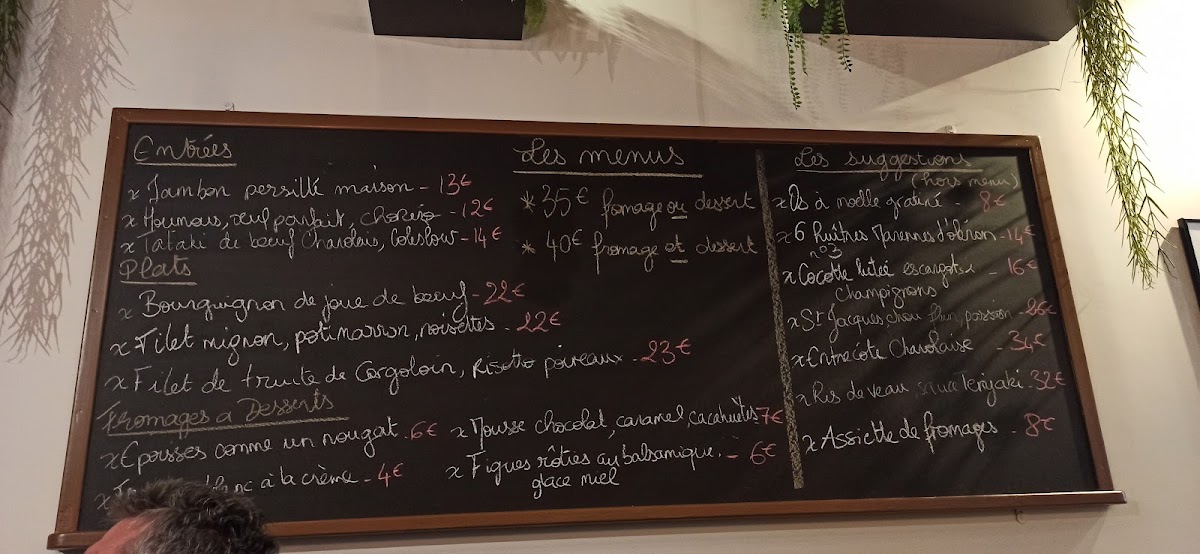 Entrées
x Jambon persillé maison - 13€
x Houmous, œuf parfait, chorizo - 12€
x Tataki de bœuf Charolais, Coleslow - 14€
Plats
x Bourguignon de joue de bœuf - 22€
x Filet mignon, potimarron, noisettes - 22€
x Filet de truite de Corgoloin, Risotto poireaux - 23€
Fromages & Desserts
x Epoisses comme un nougat - 6€
blanc à la crème - 4€
x Mousse chocolat, caramel, cacahuètes 7€
x Figues rôties au balsamique. - 6€
glace miel
Les menus
* 35€ fromage ou dessert
* 40€ fromage et dessert
Les suggestions
(hors menu)
x Os à moelle gratiné - 8€
x 6 Huîtres Marennes d'oléron - 14€
n°3
x Cocotte lutée escargots x - 16€
Champignons
x St Jacques, chou fleur, passion - 26€
x Entrecôte Charolaise - 34€
x Ris de veau, sauce Teriyaki - 32€
x Assiette de fromages - 8€